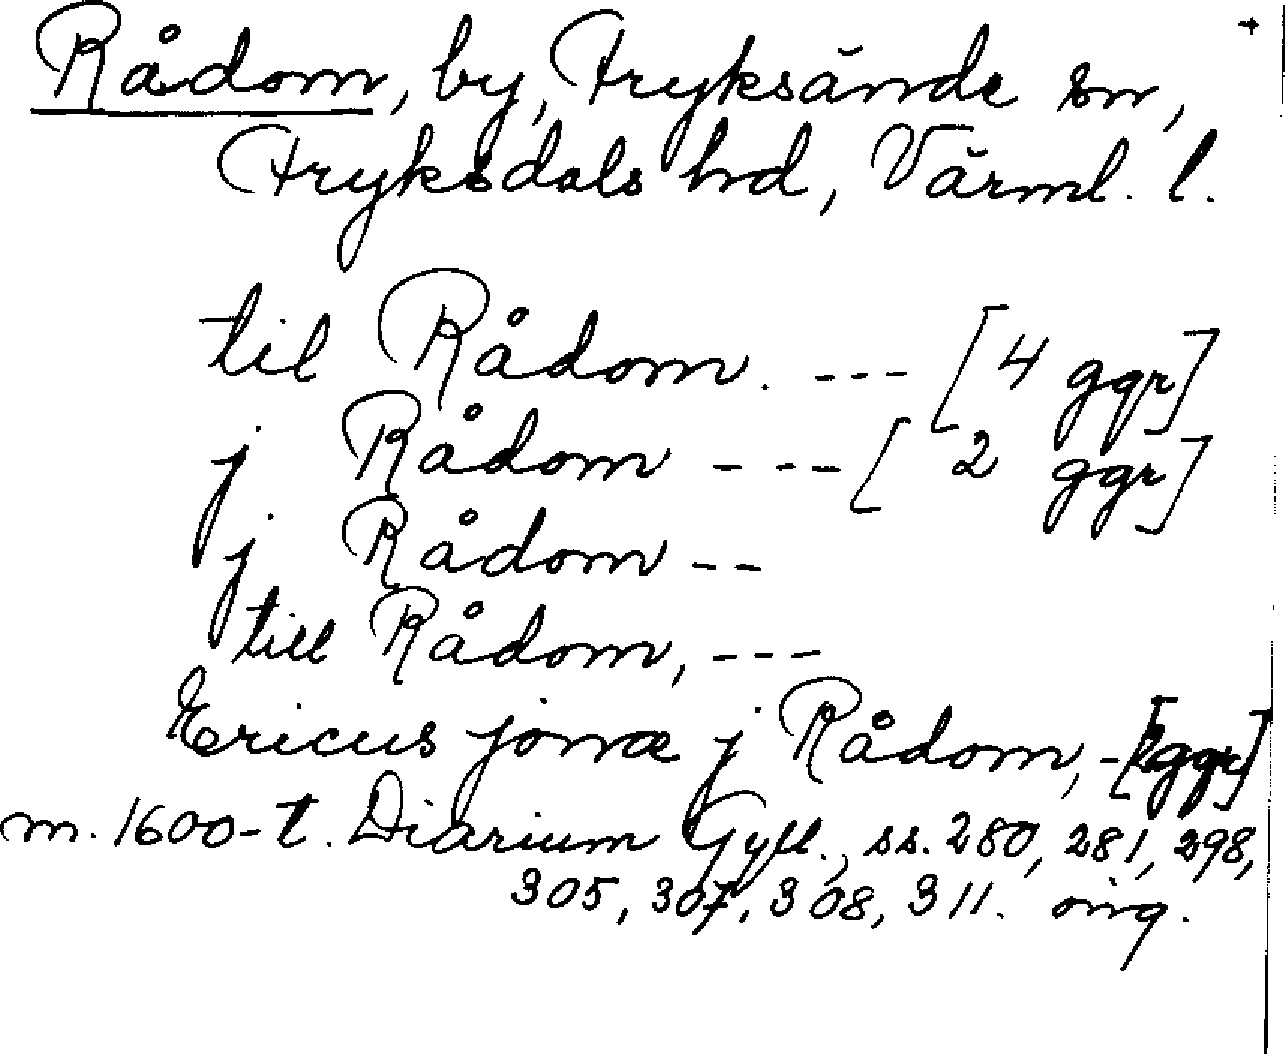 +
Rådom, by, Fryksände sn,
Fryksdals hd, Värml. l.
til Rådom. --- [4 ggr]
j Rådom --- [2 ggr]
j Rådom --
till Rådom, ---
Ericus jonæ j Rådom, - [2 ggr]
m. 1600-t. Diarium Gyll., ss. 280, 281, 298,
305, 307, 308, 311. orig.